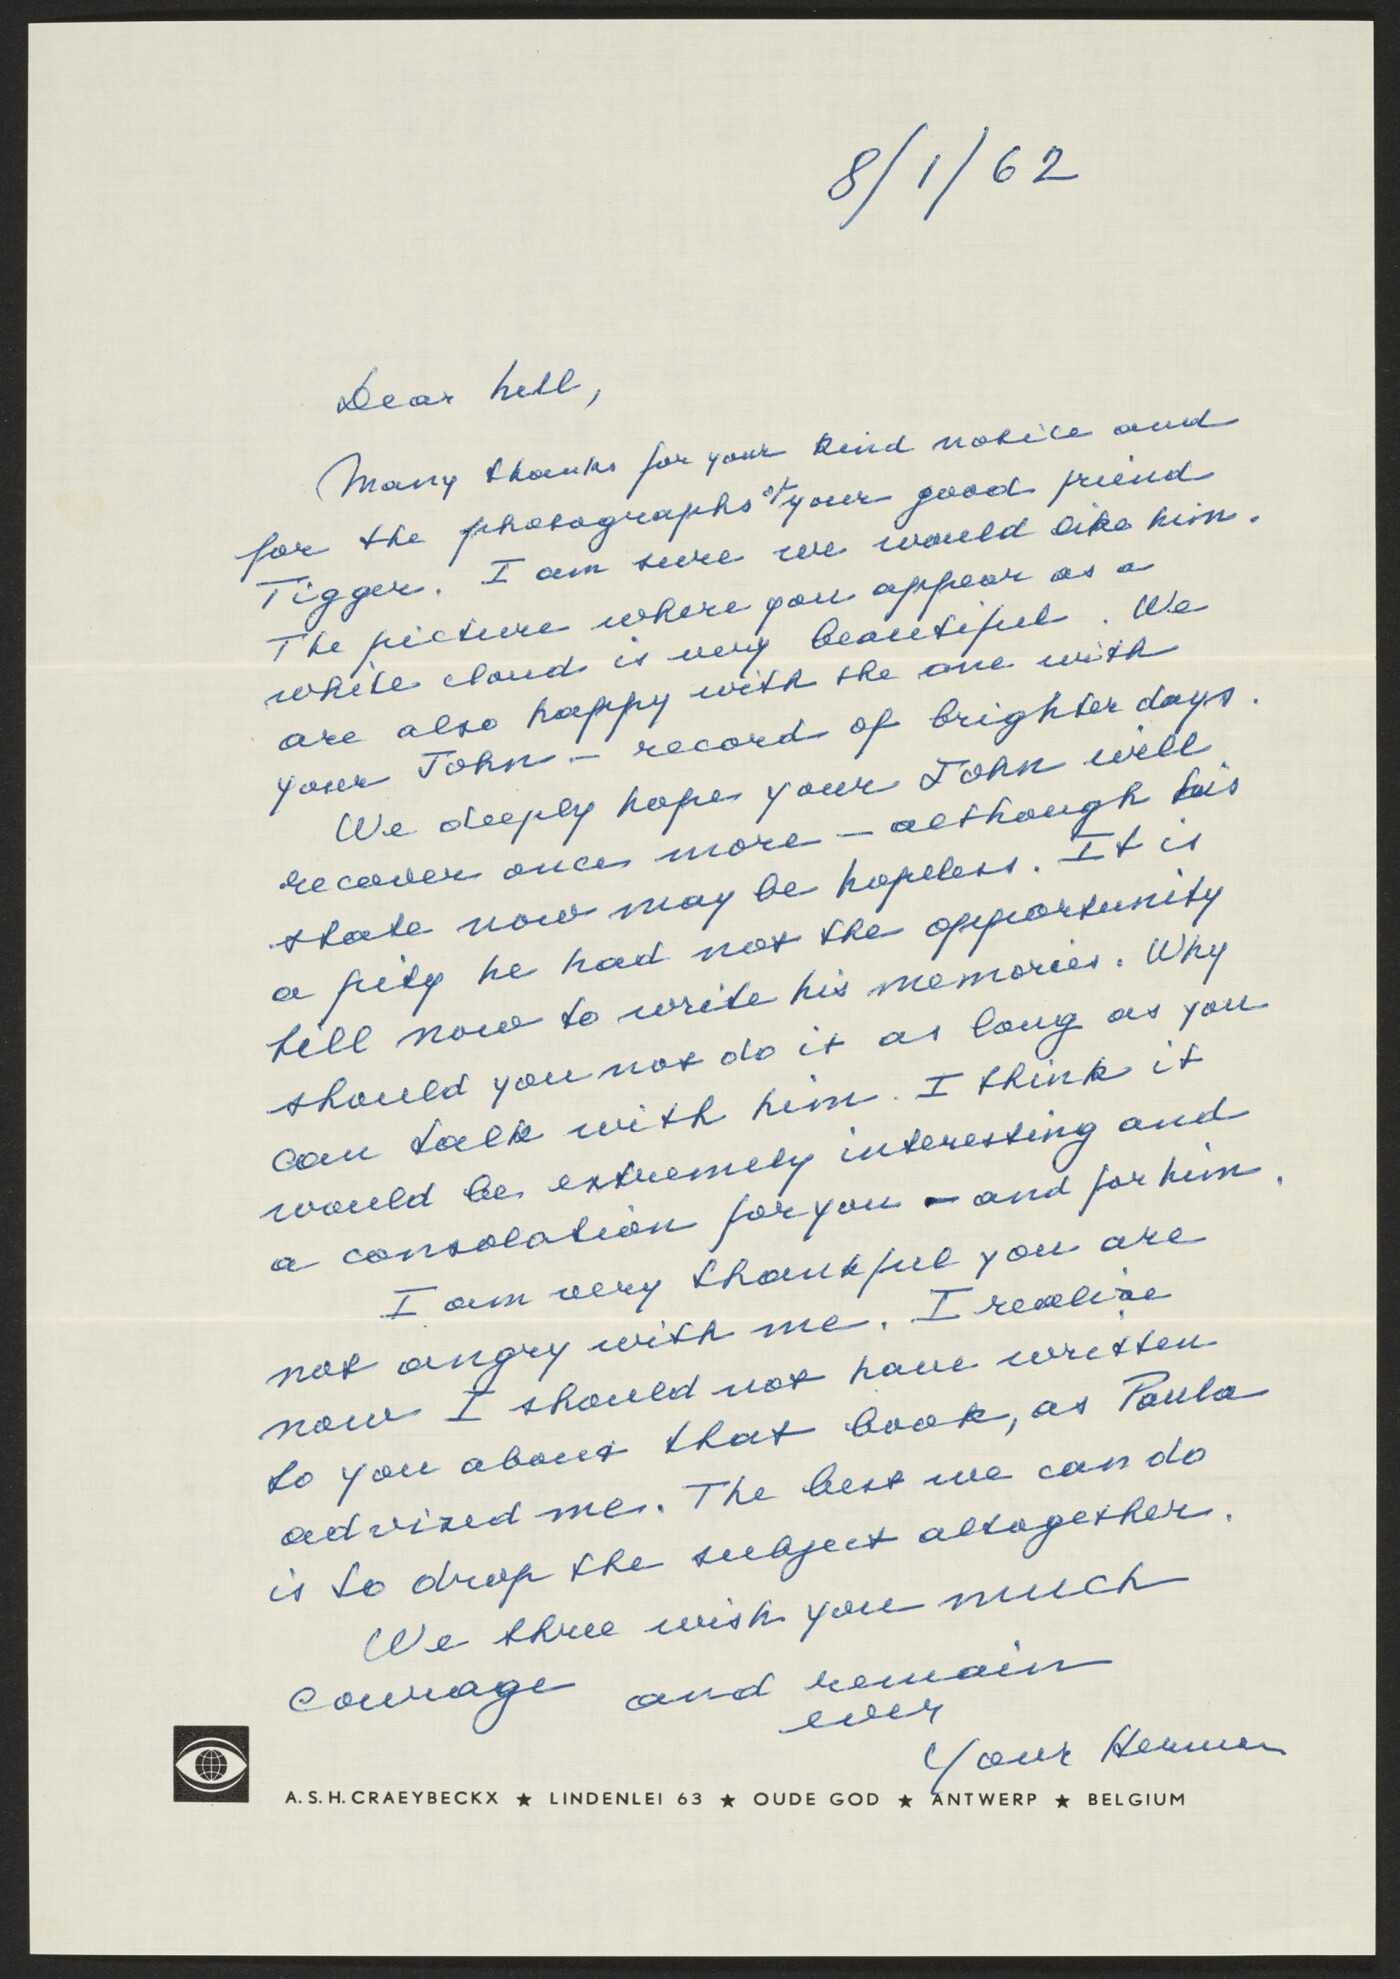 8/1/62
Dear Nell,
Many thanks for your kind notice and
for the photographs of your good friend
Tigger. I am sure we would like him.
The picture where you appear as a
white cloud is very beautiful. We
are also happy with the one with
your John – record of brighter days.
We deeply hope your John will
recover once more – although his
state now may be hopeless. It is
a pity he had not the opportunity
till now to write his memories. Why
should you not do it as long as you
can talk with him. I think it
would be extremely interesting and
a consolation for you – and for him.
I am very thankful you are
not angry with me. I realize
now I should not have written
to you about that book, as Paula
advized me. The best we can do
is to drop the subject altogether.
We three wish you much
courage and remain
ever
Your Herman
A.S.H. CRAEYBECKX ★ LINDENLEI 63 ★ OUDE GOD ★ ANTWERP ★ BELGIUM